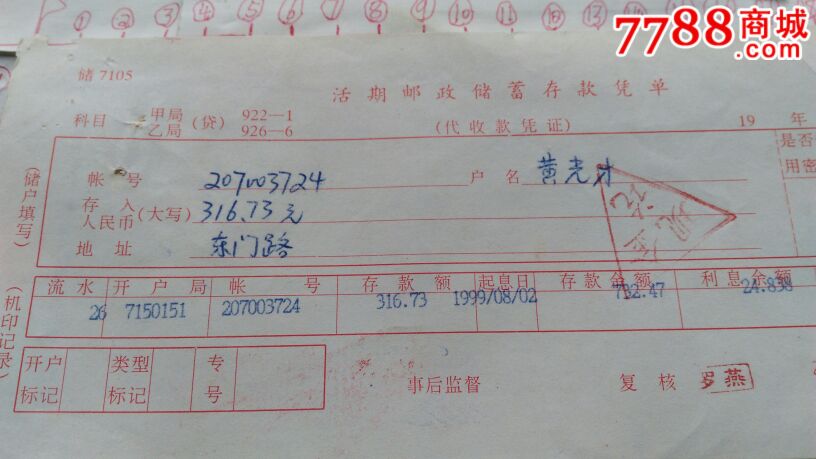 ① ② ③ ④ ⑤ ⑥ ⑦ ⑧ ⑨ ⑩ ⑪ ⑫ ⑬
7788商城
.com
储 7105
活期邮政储蓄存款凭单
科目 甲局 乙局 (贷) 922—1 926—6
(代收款凭证)
19 年
(储户填写)
帐号 207003724 户名 黄光才
是否
用密
存入人民币(大写) 316.73元
地址 东门路
流水 开户局 帐号 存款额 起息日 存款金额 利息余额
26 7150151 207003724 316.73 1999/08/02 732.47 24.838
(机印记录)
开户标记 类型标记 专号
事后监督
复核 罗燕